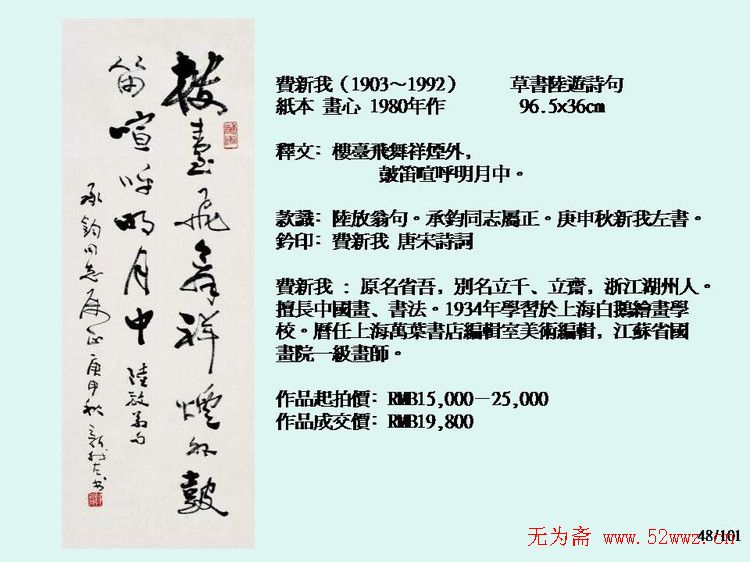 樓臺飛舞祥煙外鼓
笛喧呼明月中
陸放翁句
承鈞同志屬正庚申秋新我左書
費新我（1903～1992） 草書陸遊詩句
紙本 畫心 1980年作 96.5x36cm
釋文：樓臺飛舞祥煙外，
鼓笛喧呼明月中。
款識：陸放翁句。承鈞同志屬正。庚申秋新我左書。
鈐印：費新我 唐宋詩詞
費新我 ：原名省吾，別名立千、立齋，浙江湖州人。
擅長中國畫、書法。1934年學習於上海白鵝繪畫學
校。曆任上海萬葉書店編輯室美術編輯，江蘇省國
畫院一級畫師。
作品起拍價：RMB15,000－25,000
作品成交價：RMB19,800
48/101
无为斋 www.52wwz.cn